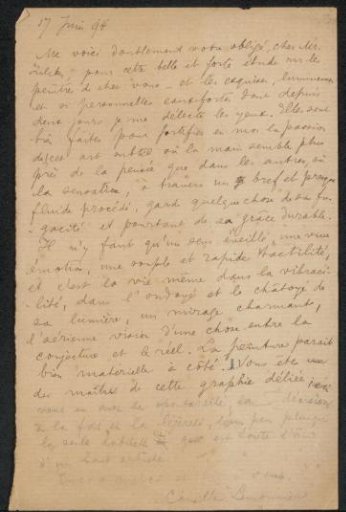 17 Juin 94
Me voici doublement votre obligé, cher Mr
Zilcken, pour cette belle et forte étude sur le
peintre de chez vous – et les exquises, lumineuses
et si personnelles eaux-fortes dont depuis
deux jours je me délecte les yeux. Elles sont
bien faites pour fortifier en moi la passion
de cet art subtil où la main semble plus
près de la pensée que dans les autres, où
la sensation, à travers un bref et presque
fluide procédé, garde quelque chose de sa fu-
gacité et pourtant de sa grâce durable.
Il n'y faut qu'un sens éveillé, une vive
émotion, une souple et rapide tactilité,
et c'est la vie même dans la vibrati-
lité, dans l'ondoyé et le chatoyé de
sa lumière, un mirage charmant,
l'aérienne vision d'une chose entre la
conjecture et le réel. La peinture paraît
bien matérielle à côté. Vous êtes un
des maîtres de cette graphie déliée,
la décision
à la fois et la légèreté
la seule habileté que est toute
d'un haut artiste
Camille Lemonnier